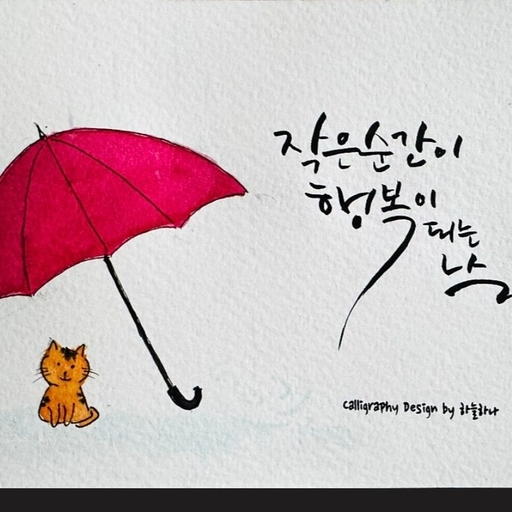 작은 순간이
행복이
되는
날
Calligraphy Design by 하늘하나